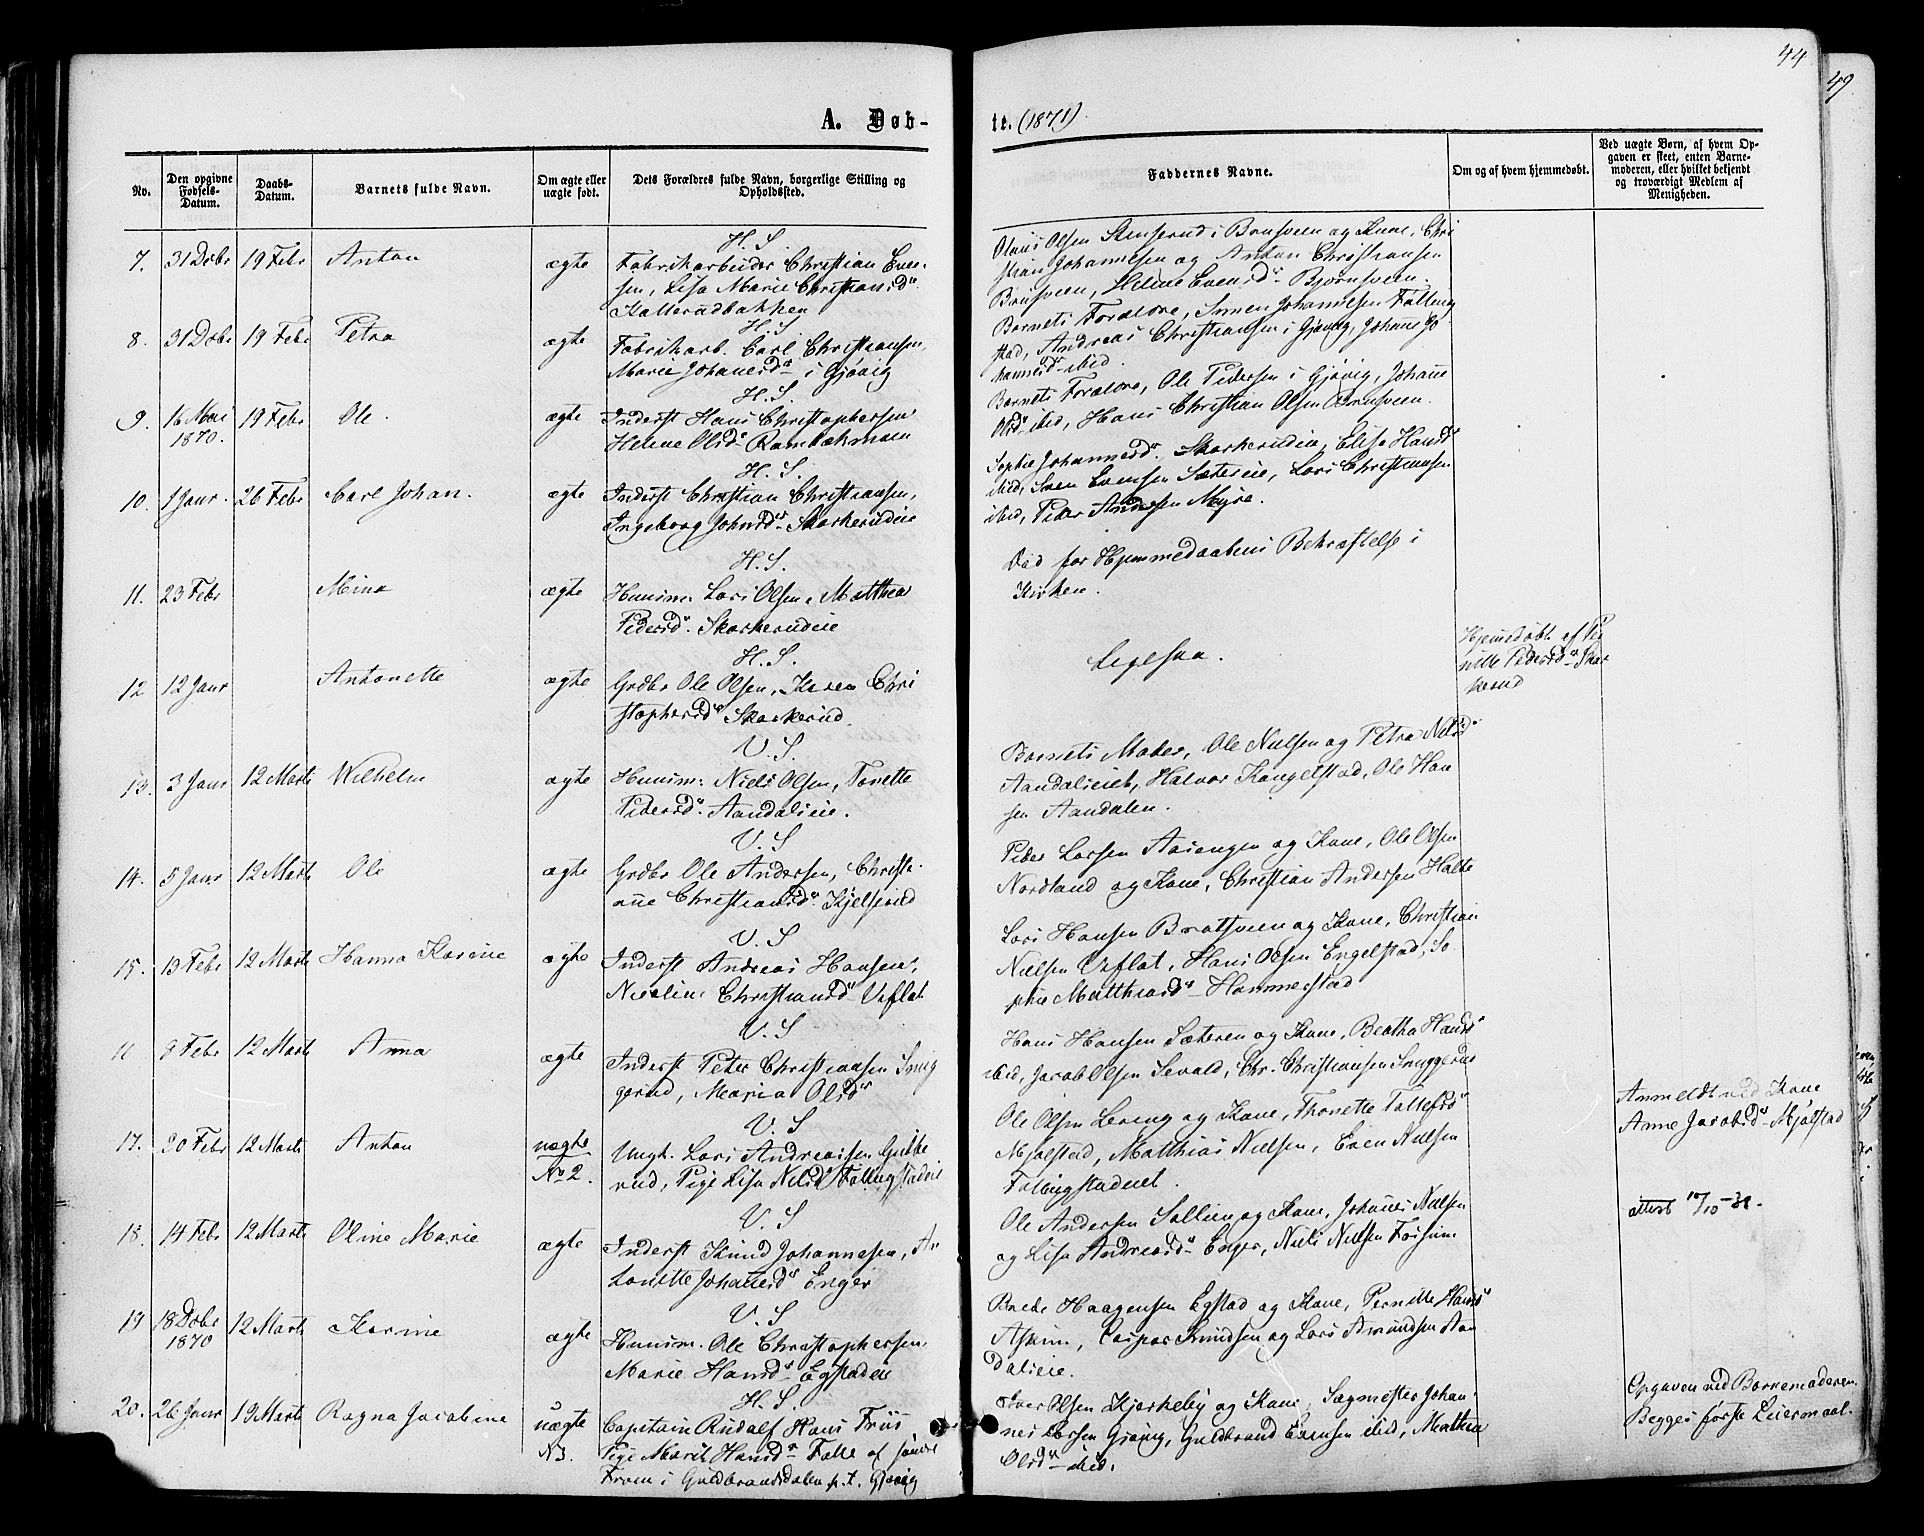 44
49
A. Døb-
te. (1871)
No.
Den opgivne Fødsels-Datum.
Daabs-Datum.
Barnets fulde Navn.
Om ægte eller uægte født.
Dets Forældres fulde Navn, borgerlige Stilling og Opholdssted.
Faddernes Navne.
Om og af hvem hjemmedøbt.
Ved uægte Børn, af hvem Op-
gaven er skeet, enten Barne-
moderen, eller hvilket bekjendt
og troværdigt Medlem af
Menigheden.
H. S.
7. 31 Dcbr 19 Febr Anton ægte Fabrikarbeider Christian Even-
sen, Lisa Marie Christiansdr
Kallerudbakken
Olaus Olsen Stenserud i Brusveen og Kone, Chri
stian Johannesen og Anton Christiansen
Brusveen, Helene Evensdr Bjørnsveen.
H. S.
8. 31 Dcbr 19 Febr Petra ægte Fabrikarb. Carl Christiansen,
Marie Johansdr i Gjøvig
Barnets Forældre, Simen Johannesen Falleng
stad, Andreas Christiansen i Gjøvig, Johanne Jo
hannesdr ibid.
H. S.
9. 16 Mai 1870. 19 Febr Ole. ægte Inderst Hans Christophersen
Helene Olsdr Rambækmoen
Barnets Forældre, Ole Pedersen i Gjøvig, Johanne
Olsdr ibid, Hans Christian Olsen Brusveen.
H. S.
10. 1 Janr. 26 Febr Carl Johan. ægte Inderst Christian Christiansen,
Ingeborg Johnsdr Skarkerudeie
Sophie Johannesdr Skarkerudeie, Elise Hansdr
ibid, Sven Evensen Sætereie, Lars Christiansen
ibid, Peder Andersen Myre.
H. S.
11. 23 Febr Mina ægte Huusm. Lars Olsen, Matthea
Pedersdr Skarkerudeie
Død før Hjemmedaabens Bekræftelse i
Kirken.
H. S.
12 12 Janr Antonette ægte Grdbr Ole Olsen, Karen Chri
stophersdr Skarkerud.
Ligesaa.
Hjemdøbt af Per
nille Pedersdr Skar
kerud
V. S.
13. 3 Janr 12 Marts Wilhelm ægte Huusm. Niels Olsen, Tonette
Pedersdr Aandalseie.
Barnets Moder, Ole Nielsen og Petra Nielsdr
Aandalseiet, Halvor Kangelstad, Ole Han
sen Aandalen.
V. S
14. 5 Janr 12 Marts Ole ægte Grdbr Ole Andersen, Christi-
ane Christiansdr Kjelserud
Peder Larsen Aasengen og Kone, Ole Olsen
Nordland og Kone, Christian Andersen Halte
V. S
15. 13 Febr 12 Marts Hanna Karine ægte Inderst Andreas Hansen,
Nicoline Christiansdr Veflat
Lars Hansen Bratsveen og Kone, Christian
Nielsen Veflat, Hans Olsen Engelstad, So-
phie Matthiasdr Hammerstad
V. S
16 8 Febr 12 Marts Anna ægte Inderst Peter Christiansen Snug
gerud, Maria Olsdr
Hans Hansen Sæteren og Kone, Beatha Hansdr
ibid, Jacob Olsen Sevald, Chr. Christiansen Snuggerud
V. S
17. 20 Febr 12 Marts Anton uægte No 2. Ungk. Lars Andreassen Gubbe
rud, Pige Lisa Nilsdr Fallingstadeie
Ole Olsen Leeng og Kone, Thonette Tollefsdr
Mjølstad, Matthias Nielsen, Even Nielsen
Fallingstadeiet.
Anmeldt ved Kone
Anne Jacobsdr Mjølstad
V. S
18. 14 Febr 12 Marts Oline Marie ægte Inderst Knud Johannesen, An
tonette Johansdr Enger
Ole Andersen Sollien og Kone, Johanes Nielsen
og Lisa Andreasdr Enger, Niels Nielsen Forsum
attest 17/10-31.
V. S
19 18 Dcbr 1870 12 Marts Karine ægte Huusm. Ole Christophersen,
Marie Hansdr Egstadeie
Brede Haagensen Egstad og Kone, Pernille Hansdr
Askim, Caspar Knudsen og Lars Amundsen Aan
dalseie.
H. S.
20. 26 Janr 19 Marts Ragna Jacobine uægte N3. Capitain Rudolf Hans Friis
Pige Marit Hansdr Falle af søndre
Fron i Guldbrandsdalen p.t. Gjøvig
Iver Olsen Kjerkeby og Kone, Sagmester Johan-
nes Larsen Gjøvig, Guldbrand Evensen ibid, Mathea
Olsdr ibid.
Opgaven ved Barnemoderen.
Begges første Leiermaal.